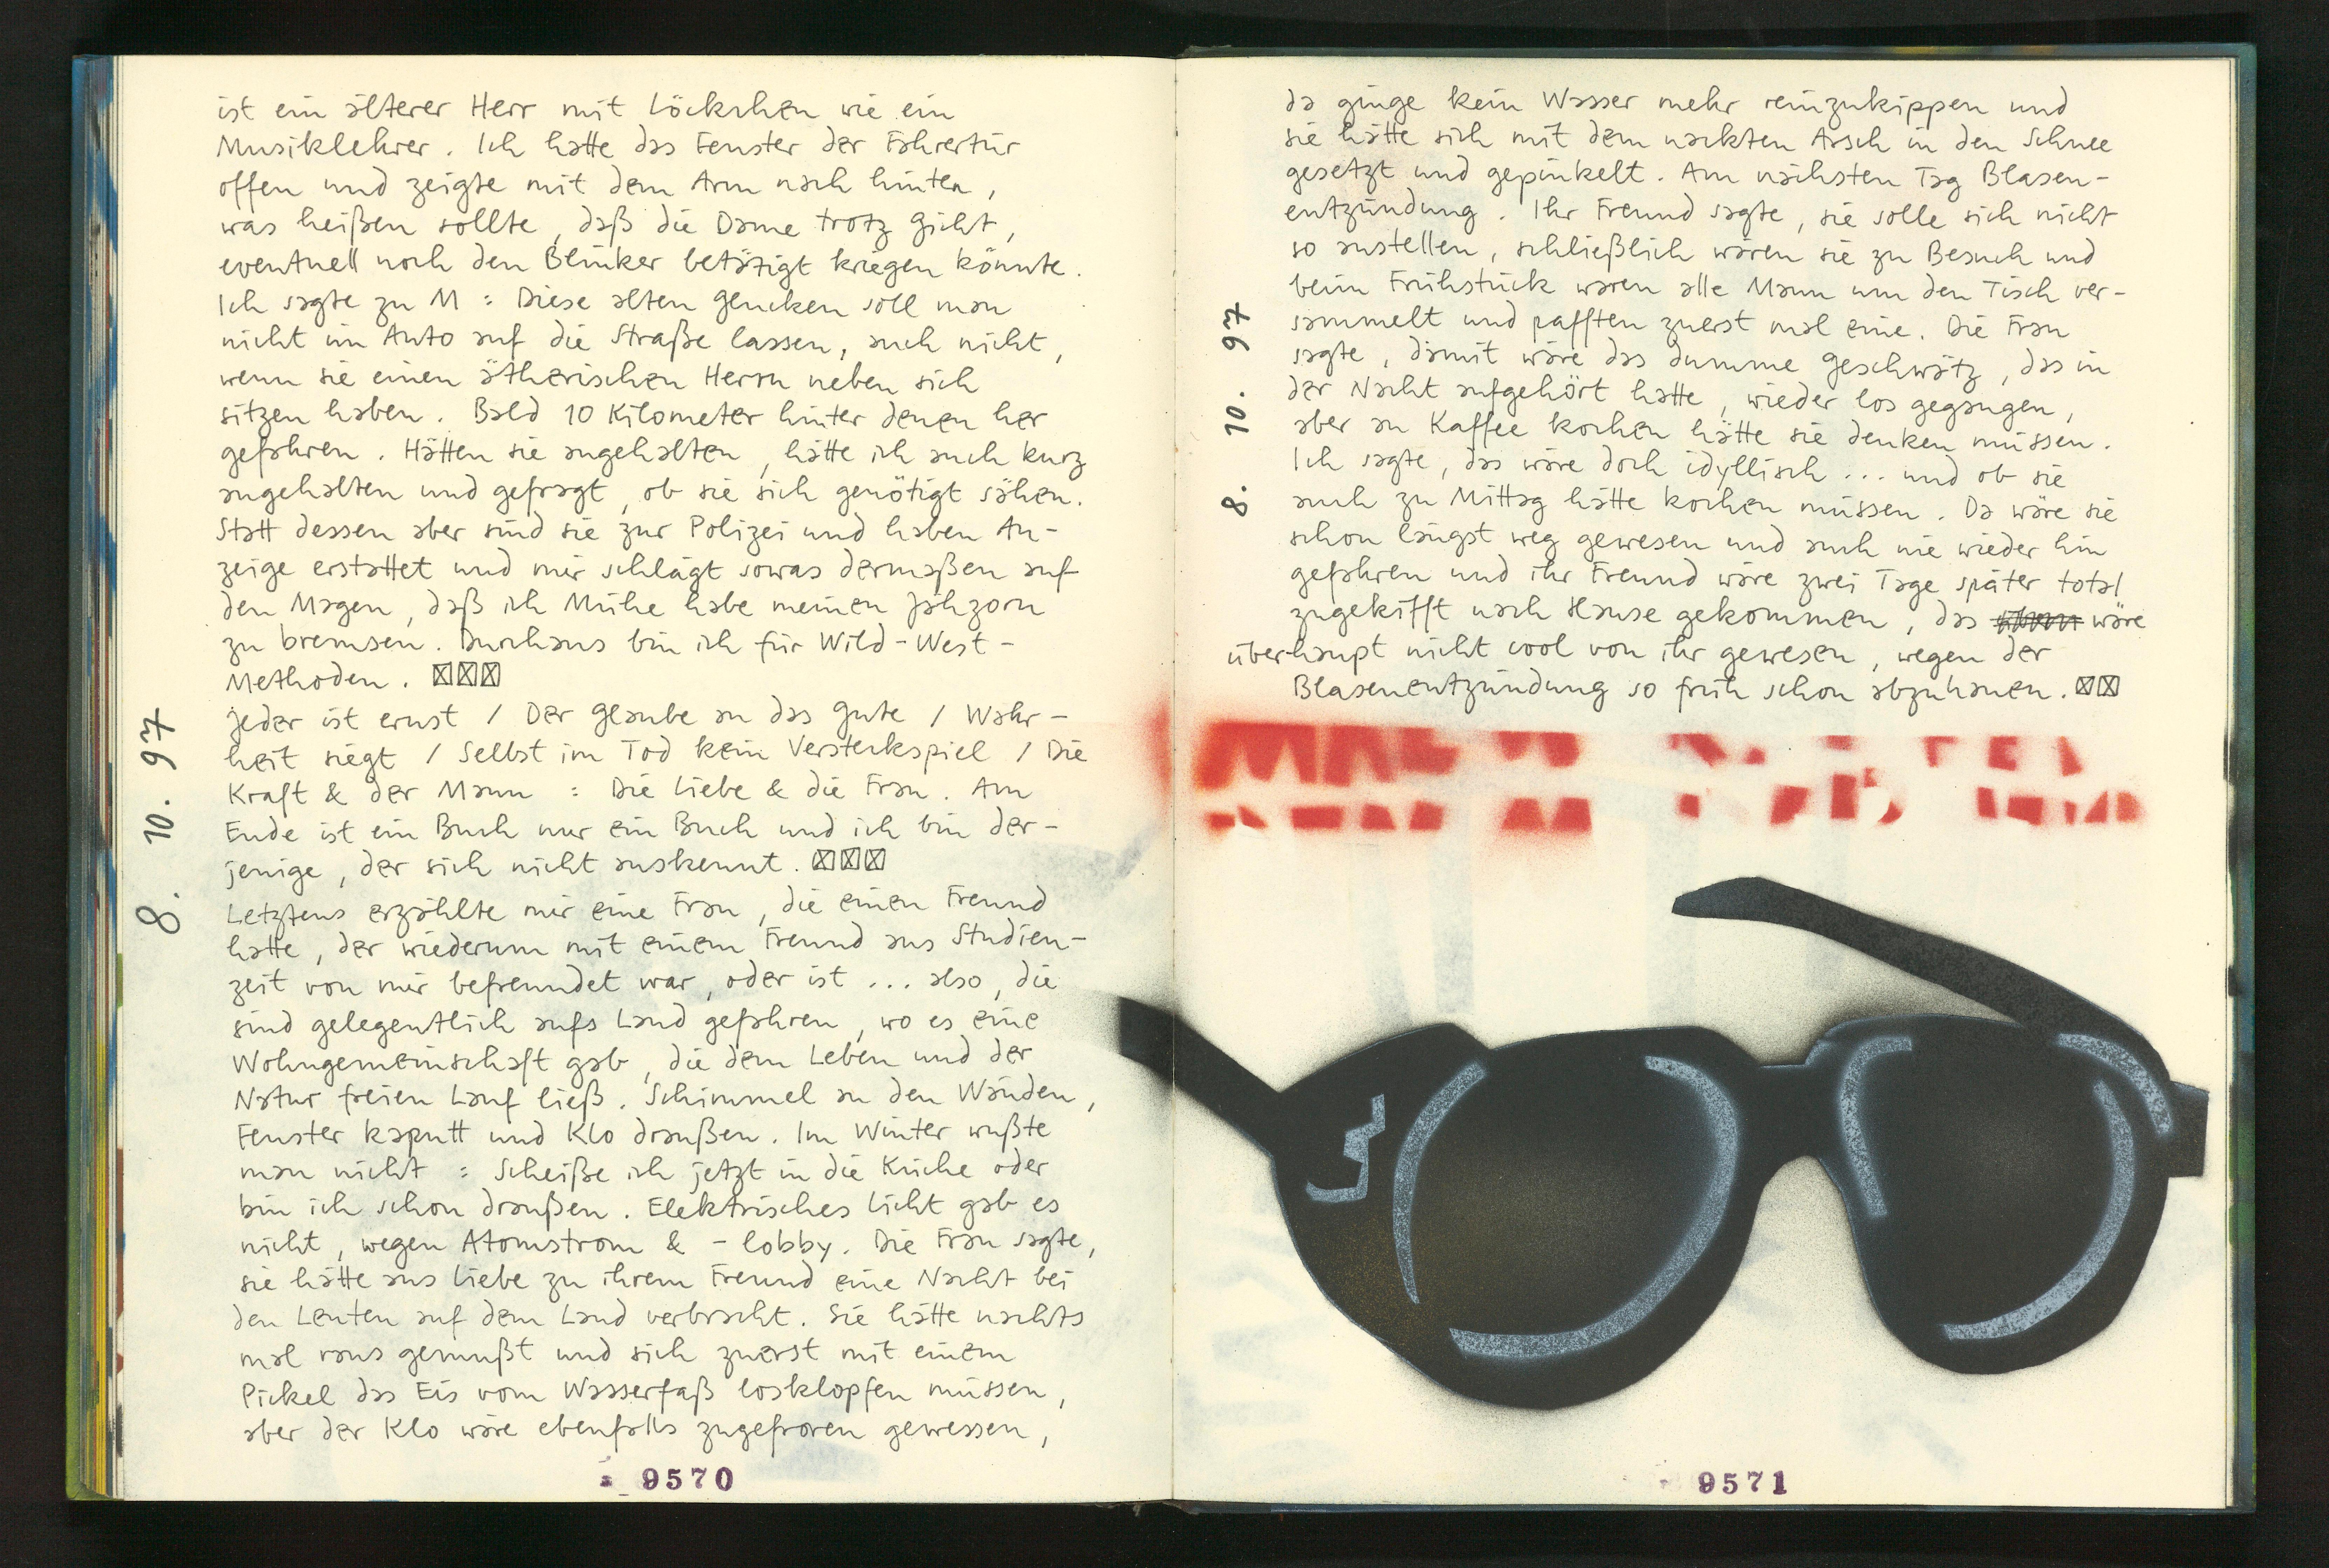 ist ein älterer Herr mit Löckchen wie ein
Musiklehrer. Ich hatte das Fenster der Fahrertür
offen und zeigte mit dem Arm nach hinten,
was heißen sollte, daß die Dame trotz Gicht,
eventuell noch den Blinker betätigt kriegen könnte.
Ich sagte zu M : Diese alten Glucken soll man
nicht im Auto auf die Straße lassen, auch nicht,
wenn sie einen ätherischen Herrn neben sich
sitzen haben. Bald 10 Kilometer hinter denen her
gefahren. Hätten sie angehalten, hätte ich auch kurz
angehalten und gefragt, ob sie sich genötigt sähen.
Statt dessen aber sind sie zur Polizei und haben An-
zeige erstattet und mir schlägt sowas dermaßen auf
den Magen, daß ich Mühe habe meinen Jähzorn
zu bremsen. Durchaus bin ich für Wild-West-
Methoden.
8. 10. 97
jeder ist ernst / Der Glaube an das Gute / Wahr-
heit siegt / Selbst im Tod kein Versteckspiel / Die
Kraft & der Mann : Die Liebe & die Frau. Am
Ende ist ein Buch nur ein Buch und ich bin der-
jenige, der sich nicht auskennt.
Letztens erzählte mir eine Frau, die einen Freund
hatte, der wiederum mit einem Freund aus Studien-
zeit von mir befreundet war, oder ist ... also, die
sind gelegentlich aufs Land gefahren, wo es eine
Wohngemeinschaft gab, die dem Leben und der
Natur freien Lauf ließ. Schimmel an den Wänden,
Fenster kaputt und Klo draußen. Im Winter wußte
man nicht : Scheiße ich jetzt in die Küche oder
bin ich schon draußen. Elektrisches Licht gab es
nicht, wegen Atomstrom & -lobby. Die Frau sagte,
sie hätte aus Liebe zu ihrem Freund eine Nacht bei
den Leuten auf dem Land verbracht. Sie hätte nachts
mal raus gemußt und sich zuerst mit einem
Pickel das Eis vom Wasserfaß losklopfen müssen,
aber der Klo wäre ebenfalls zugefroren gewessen,
9570
da ginge kein Wasser mehr reinzukippen und
sie hätte sich mit dem nackten Assch in den Schnee
gesetzt und gepinkelt. Am nächsten Tag Blasen-
entzündung. Ihr Freund sagte, sie solle sich nicht
so anstellen, schließlich wären sie zu Besuch und
beim Frühstück waren alle Mann um den Tisch ver-
sammelt und pafften zuerst mal eine. Die Frau
sagte, damit wäre das dumme Geschwätz, das in
der Nacht aufgehört hatte, wieder los gegangen,
aber an Kaffee kochen hätte sie denken müssen.
Ich sagte, das wäre doch idyllisch ... und ob sie
auch zu Mittag hätte kochen müssen. Da wäre sie
schon längst weg gewesen und auch nie wieder hin
gefahren und ihr Freund wäre zwei Tage später total
zugekifft nach Hause gekommen, das wäre
überhaupt nicht cool von ihr gewesen, wegen der
Blasenentzündung so früh schon abzuhauen.
8. 10. 97
9571